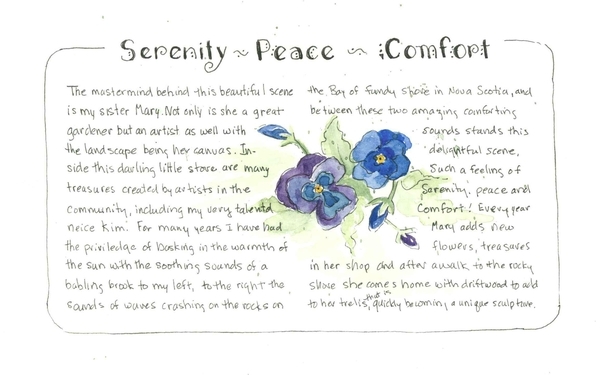 Serenity ~ Peace ~ Comfort
The mastermind behind this beautiful scene
is my sister Mary. Not only is she a great
gardener but an artist as well with
the landscape being her canvas. In-
side this darling little store are many
treasures created by artists in the
community, including my very talented
neice Kim. For many years I have had
the priviledge of basking in the warmth of
the sun with the soothing sounds of a
babling brook to my left, to the right the
sounds of waves crashing on the rocks on
the Bay of Fundy shore in Nova Scotia, and
between these two amazing comforting
sounds stands this
delightful scene,
Such a feeling of
Serenity, peace and
Comfort! Every year
Mary adds new
flowers, treasures
in her shop and after a walk to the rocky
shore she comes home with driftwood to add
to her trelis, that is quickly becoming a unique sculpture.